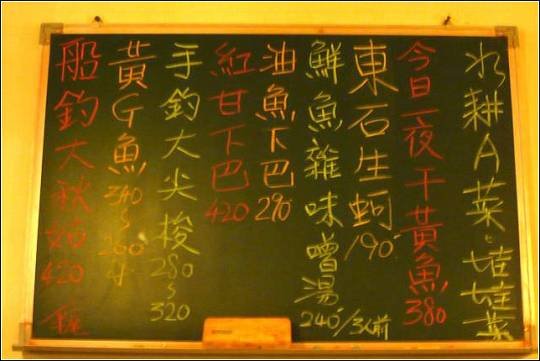 水耕A菜、娃娃菜
今日一夜干黃魚380
東石生蚵190
鮮魚雜味噌湯240/3人前
油魚下巴290
紅甘下巴420
手釣大尖梭280~320
黃G魚240~
船釣大秋姑420